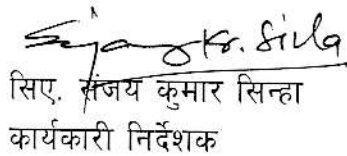 Sanjay Kr. Sinha
सिए. संजय कुमार सिन्हा
कार्यकारी निर्देशक